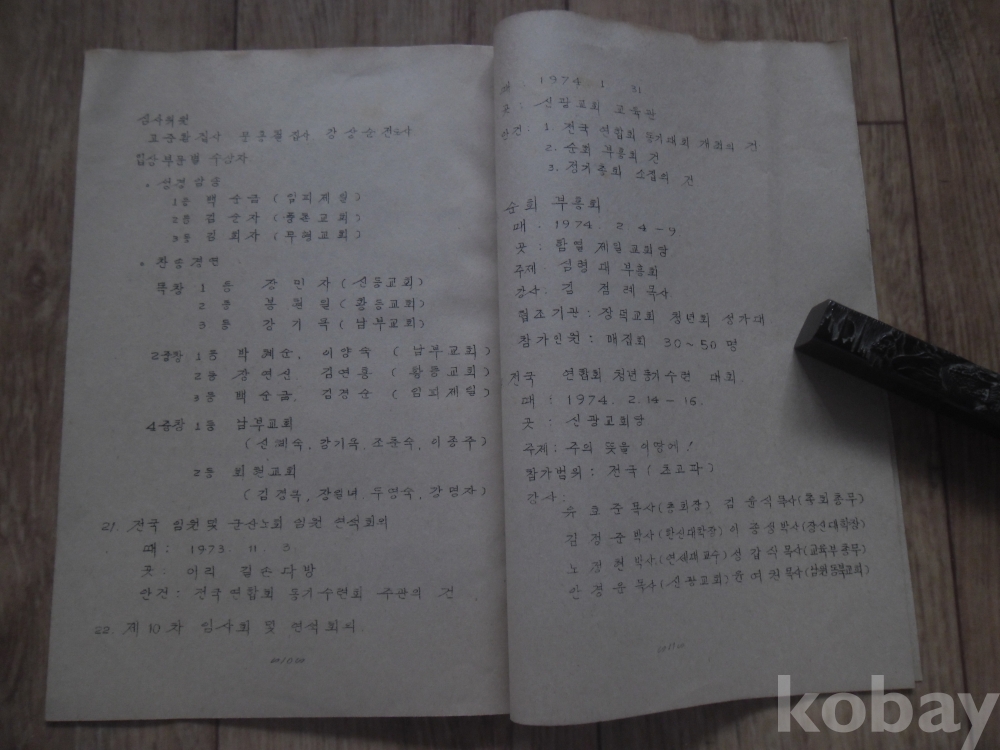 심사위원
입상부문별 수상자
• 성경암송
1등 백순금 (임피제일)
2등 김순자 (
3등 김희자 (
• 찬송경연
독창 1등 강민자 (신등교회)
2등 봉원일 (황등교회)
3등 강기옥 (남부교회)
2중창 1등 박혜순, 이양숙 (남부교회)
2등 장연신, 김연홍 (황등교회)
3등 백순금, 김경순 (임피제일)
4중창 1등 남부교회
(신혜숙, 강기옥, 조춘숙, 이종주)
2등 회원교회
(김경옥, 두명숙, 강명자)
21. 전국 임원 및 군산노회 임원 연석회의
때: 1973. 11. 3.
곳: 이리 길손다방
안건: 전국연합회 동기수련회 주관의 건
22. 제10차 임사회 및 연석회의
때: 1974. 1. 31
곳: 신광교회 교육관
안건: 1. 전국 연합회 동기대회 개최의 건
2. 순회 부흥회 건
3. 정기총회 소집의 건
순회 부흥회
때: 1974. 2. 4-9
곳: 함열 제일교회당
주제: 심령대부흥회
강사: 김정례 목사
협조기관: 장덕교회 청년회 성가대
참가인원: 매집회 30~50명
전국 연합회 청년동기수련 대회.
때: 1974. 2. 14-16.
곳: 신광교회당
주제: 주의 뜻을 이땅에!
참가범위: 전국 (초교파)
강사:
유호준목사(총회장) 김윤식목사(총회총무)
김정준박사(한신대학장) 이종성박사(장신대학장)
노정현박사(연세대교수) 성갑식목사(교육부총무)
안경운목사(신광교회) 윤여권목사(남원동북교회)
kobay